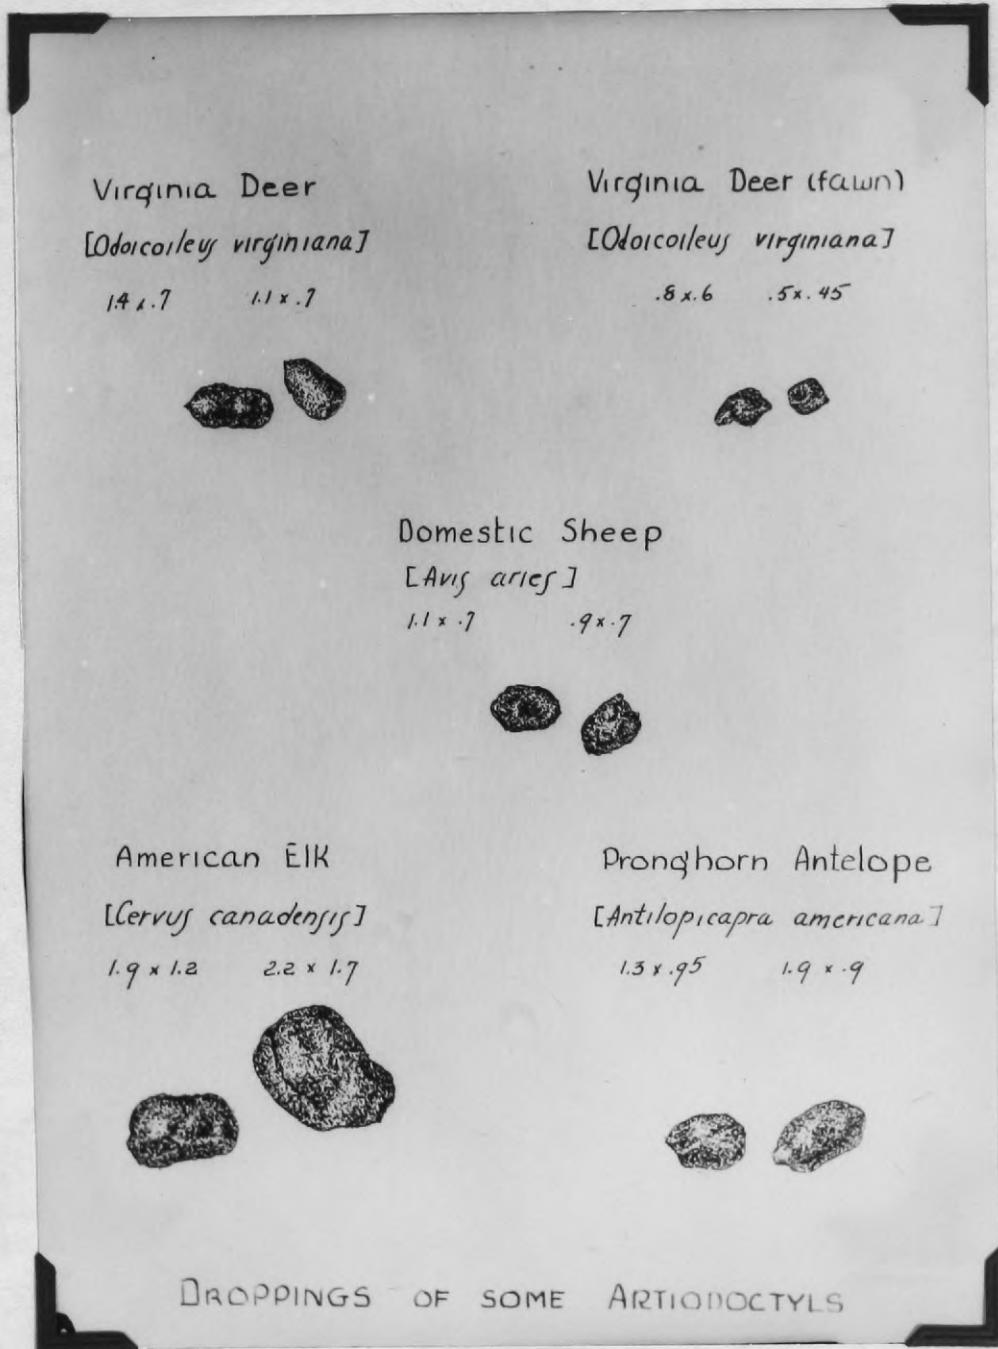 Virginia Deer
[Odoicoileus virginiana]
1.4 x .7 1.1 x .7
Virginia Deer (fawn)
[Odoicoileus virginiana]
.8 x .6 .5 x .45
Domestic Sheep
[Avis aries]
1.1 x .7 .9 x .7
American Elk
[Cervus canadensis]
1.9 x 1.2 2.2 x 1.7
Pronghorn Antelope
[Antilopicapra americana]
1.3 x .95 1.9 x .9
DROPPINGS OF SOME ARTIODOCTYLS